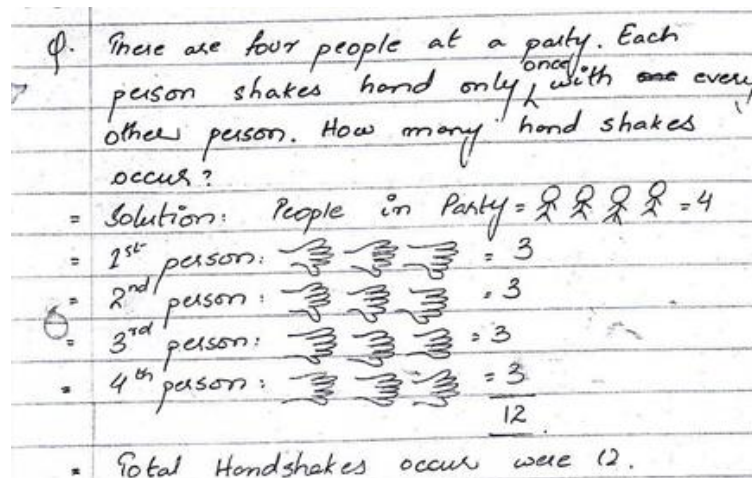 Q. There are four people at a party. Each
person shakes hand only once with every
other person. How many hand shakes
occur?
= Solution: People in Party = = 4
= 1st person: = 3
= 2nd person: = 3
= 3rd person: = 3
= 4th person: = 3
12
= Total Handshakes occur were 12.